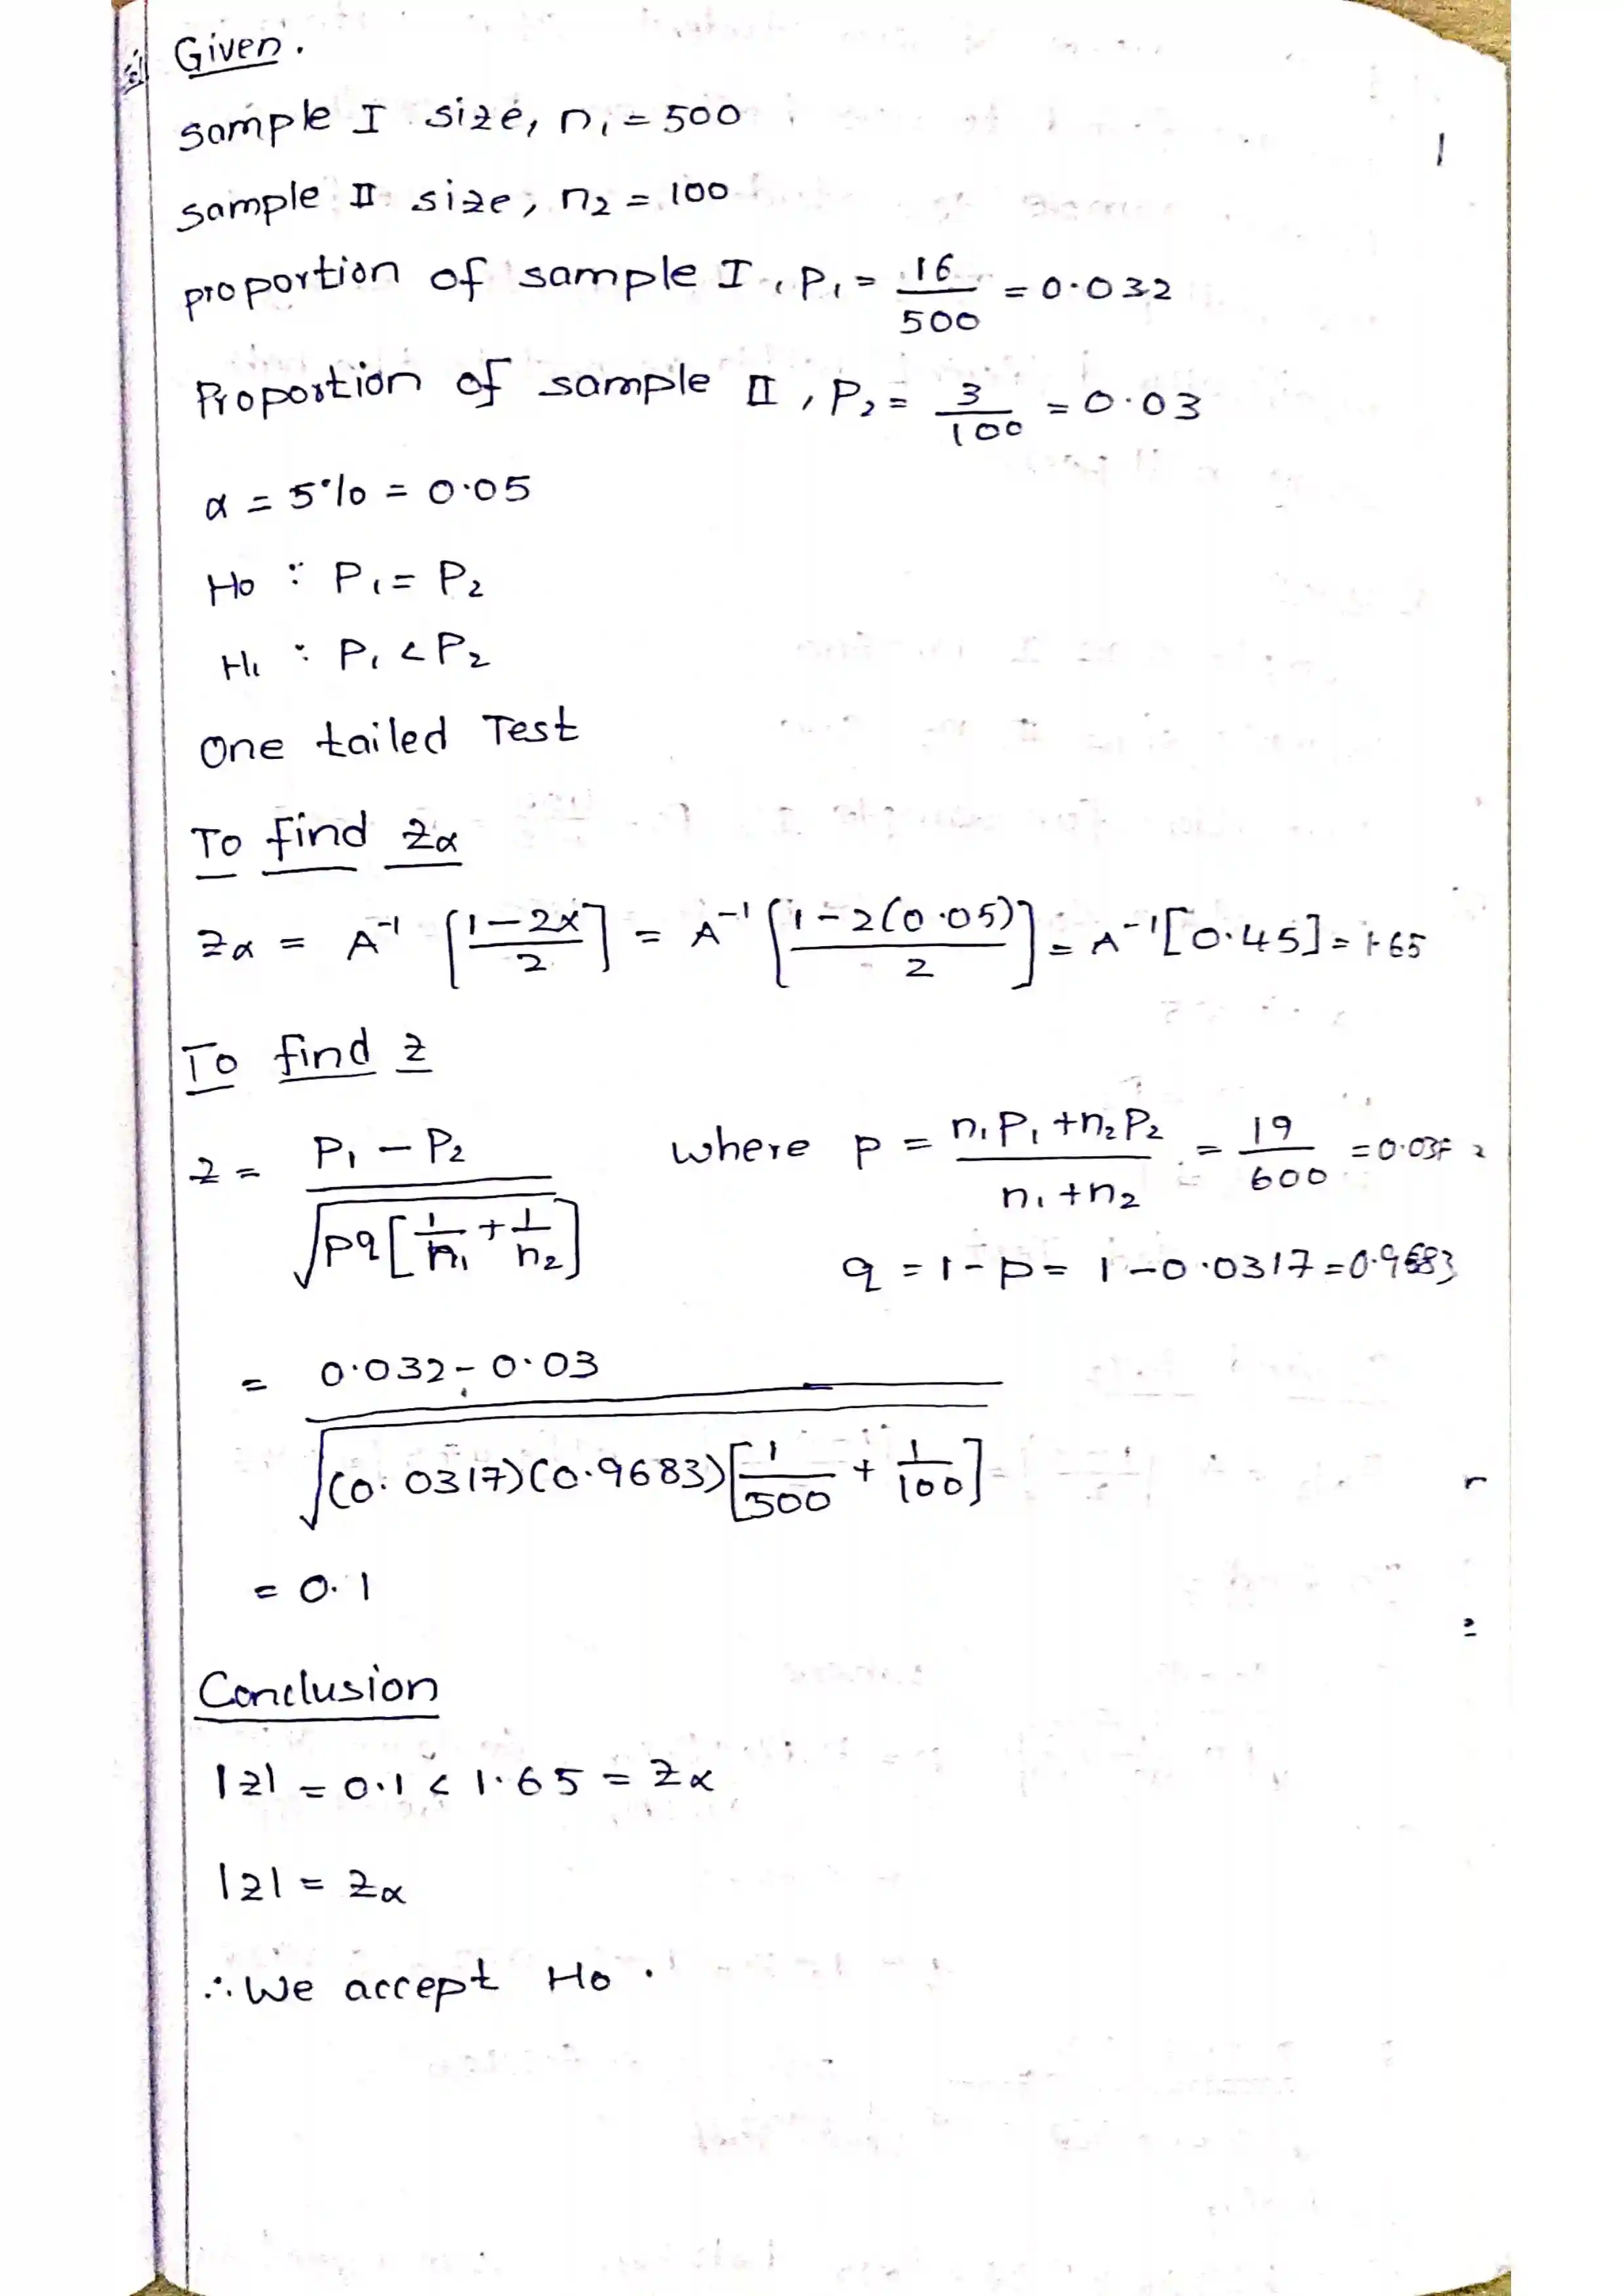 Given.
sample I size, n₁ = 500
sample II size, n₂ = 100
proportion of sample I, P₁ = 16/500 = 0.032
Proportion of sample II, P₂ = 3/100 = 0.03
α = 5% = 0.05
H₀ : P₁ = P₂
H₁ : P₁ < P₂
One tailed Test
To find zα
zα = A⁻¹ [(1-2α)/2] = A⁻¹ [(1-2(0.05))/2] = A⁻¹[0.45] = 1.65
To find z
z = (P₁ - P₂)/√(pq[1/n₁ + 1/n₂]) where p = (n₁P₁ + n₂P₂)/(n₁ + n₂) = 19/600
q = 1 - p = 1 - 0.0317 = 0.9683
= (0.032 - 0.03)/√((0.0317)(0.9683)[1/500 + 1/100])
= 0.1
Conclusion
|z| = 0.1 < 1.65 = zα
|z| = zα
∴ We accept H₀.